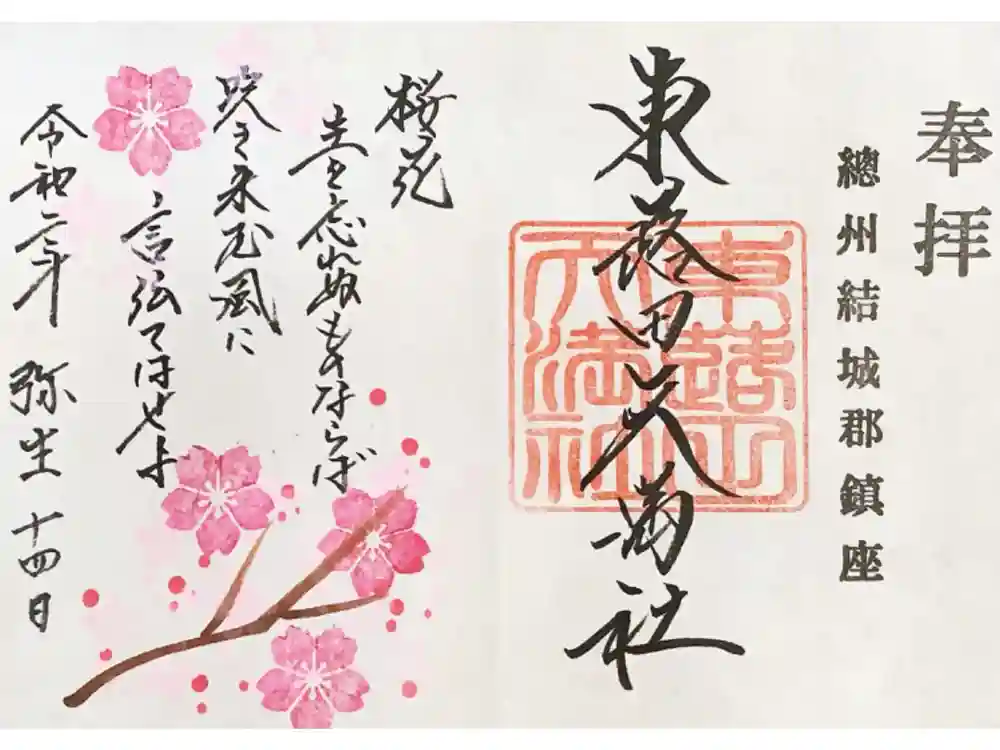 奉拝
總州結城郡鎮座
東蕗田天満社
東蕗田
天満社
桜花
主を忘れぬものならば
吹き来む風に
言伝てはせよ
令和二年 弥生 十四日